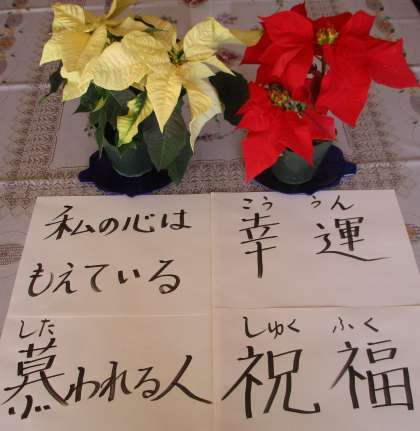 私の心は
もえている
こう うん
幸運
した
慕われる人
しゅく ふく
祝福